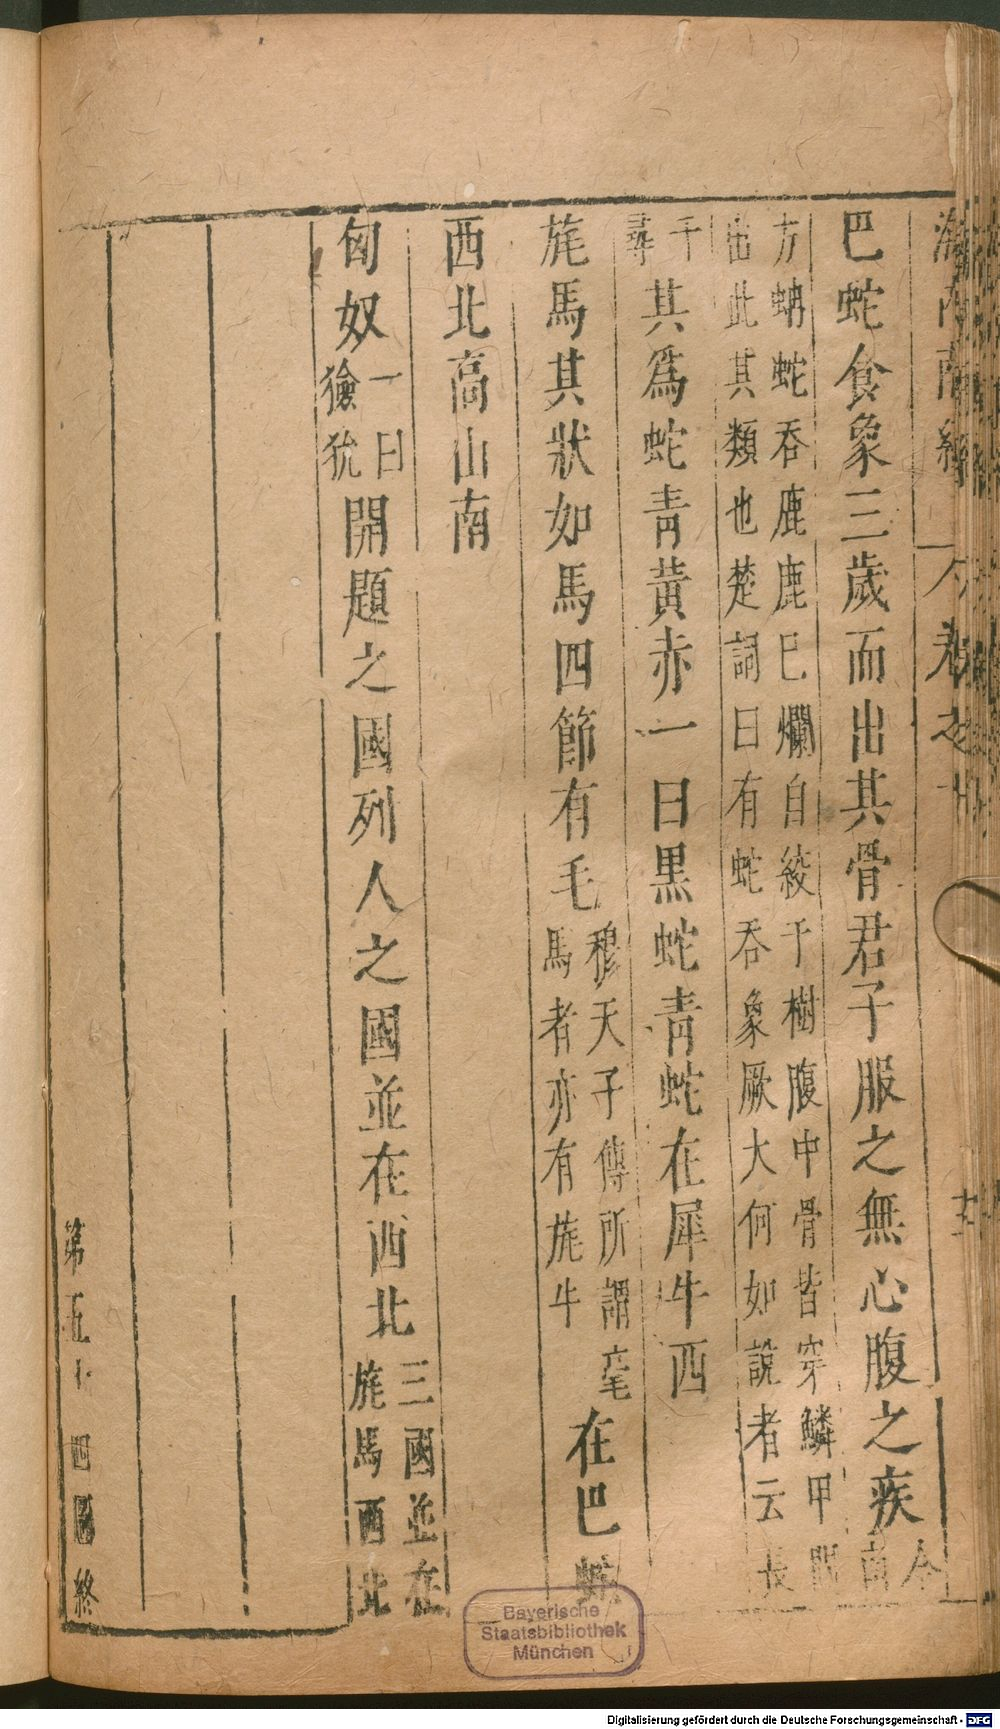 海內南經 卷之十
巴蛇食象三歲而出其骨君子服之無心腹之疾今南
方蚺蛇吞鹿鹿已爛自絞于樹腹中骨皆穿鱗甲間
出此其類也楚詞曰有蛇吞象厥大何如說者云長
千尋其為蛇青黃赤一曰黑蛇青蛇在犀牛西
旄馬其狀如馬四節有毛穆天子傳所謂豪馬者亦有旄牛在巴蛇
西北高山南
匈奴一曰獫狁開題之國列人之國並在西北三國並在旄馬西北
第五十四圖終
Bayerische
Staatsbibliothek
München
Digitalisierung gefördert durch die Deutsche Forschungsgemeinschaft - DFG